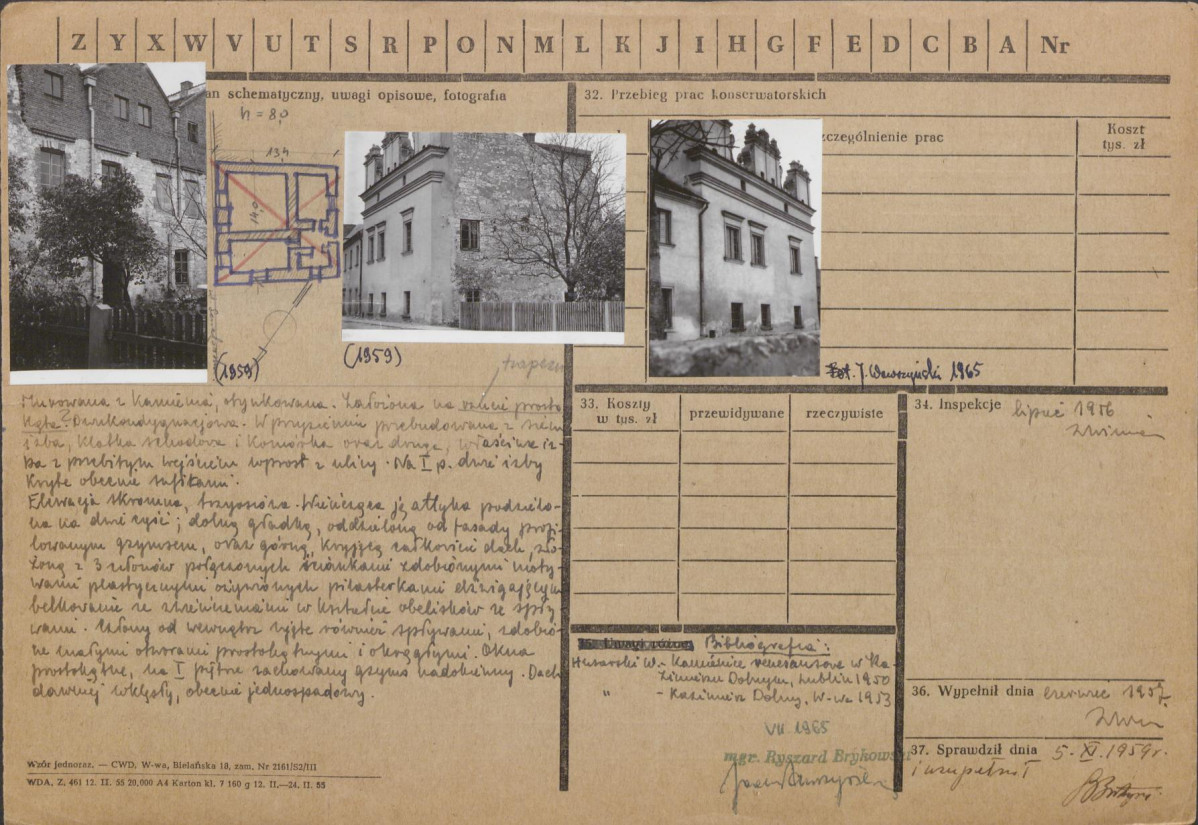 Z Y X W V U T S R P O N M L K J I H G F E D C B A Nr
an schematyczny, uwagi opisowe, fotografia
h = 8,0
13,4
14,0
(1959)
(1959)
trapezu
Murowana z kamienia, otynkowana. Założona na rzucie prosto-
kąta? Dwukondygnacjowa. W przyziemiu przebudowana z sieni
izba, klatka schodowa i komórka oraz druga, właściwa iz-
ba z przebitym wejściem wprost z ulicy. Na I p. dwie izby
kryte obecnie sufitami.
Elewacja skromna, trzyosiowa. Wieńcząca ją attyka podzielo-
na na dwie części; dolną gładką, oddzieloną od fasady profi-
lowanym gzymsem, oraz górną, kryjącą całkowicie dach, zło-
żoną z 3 szczytów połączonych ściankami zdobionymi moty-
wami plastycznymi ożywionych pilasterkami dźwigającymi
belkowanie ze zwieńczeniami w kształcie obelisków ze spły-
wami. Człony od wewnątrz ujęte również spływami, zdobio-
ne małymi otworami prostokątnymi i okrągłymi. Okna
prostokątne, na I piętrze zachowany gzyms nadokienny. Dach
dawniej wklęsły, obecnie jednospadowy.
Wzór jednoraz. — CWD, W-wa, Bielańska 18, zam. Nr 2161/S2/III
WDA. Z. 461 12. II. 55 20.000 A4 Karton kl. 7 160 g 12. II.—24. II. 55
32. Przebieg prac konserwatorskich
zczególnienie prac
Koszt
tys. zł
Fot. J. Wawrzyński 1965
33. Koszty
w tys. zł
przewidywane
rzeczywiste
34. Inspekcje lipiec 1956
35. Uwagi różne Bibliografia:
Husarski W. - Kamienice renesansowe w Ka-
zimierzu Dolnym, Lublin 1950
" - Kazimierz Dolny, W-wa 1953
VII 1965
mgr. Ryszard Brykowski
36. Wypełnił dnia czerwiec 1957.
37. Sprawdził dnia 5. XI. 1959 r.
i uzupełnił